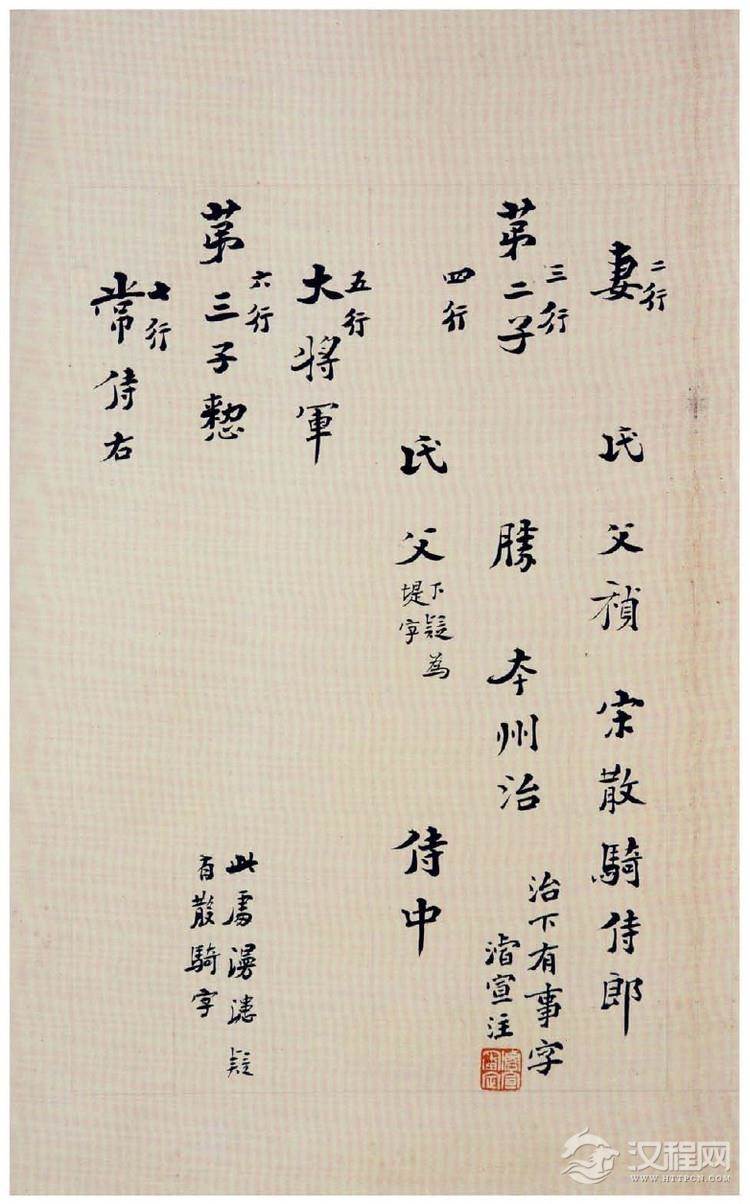 二行
妻　氏父禎　宋散騎侍郎
三行
苐二子　勝　本州治
治下有事字
濬宣注
四行
氏父　侍中
下疑為
堤字
五行
大將軍
六行
苐三子
此處漫漶疑
有散騎字
七行
常侍右
汉程网
WWW.HTTPCN.COM